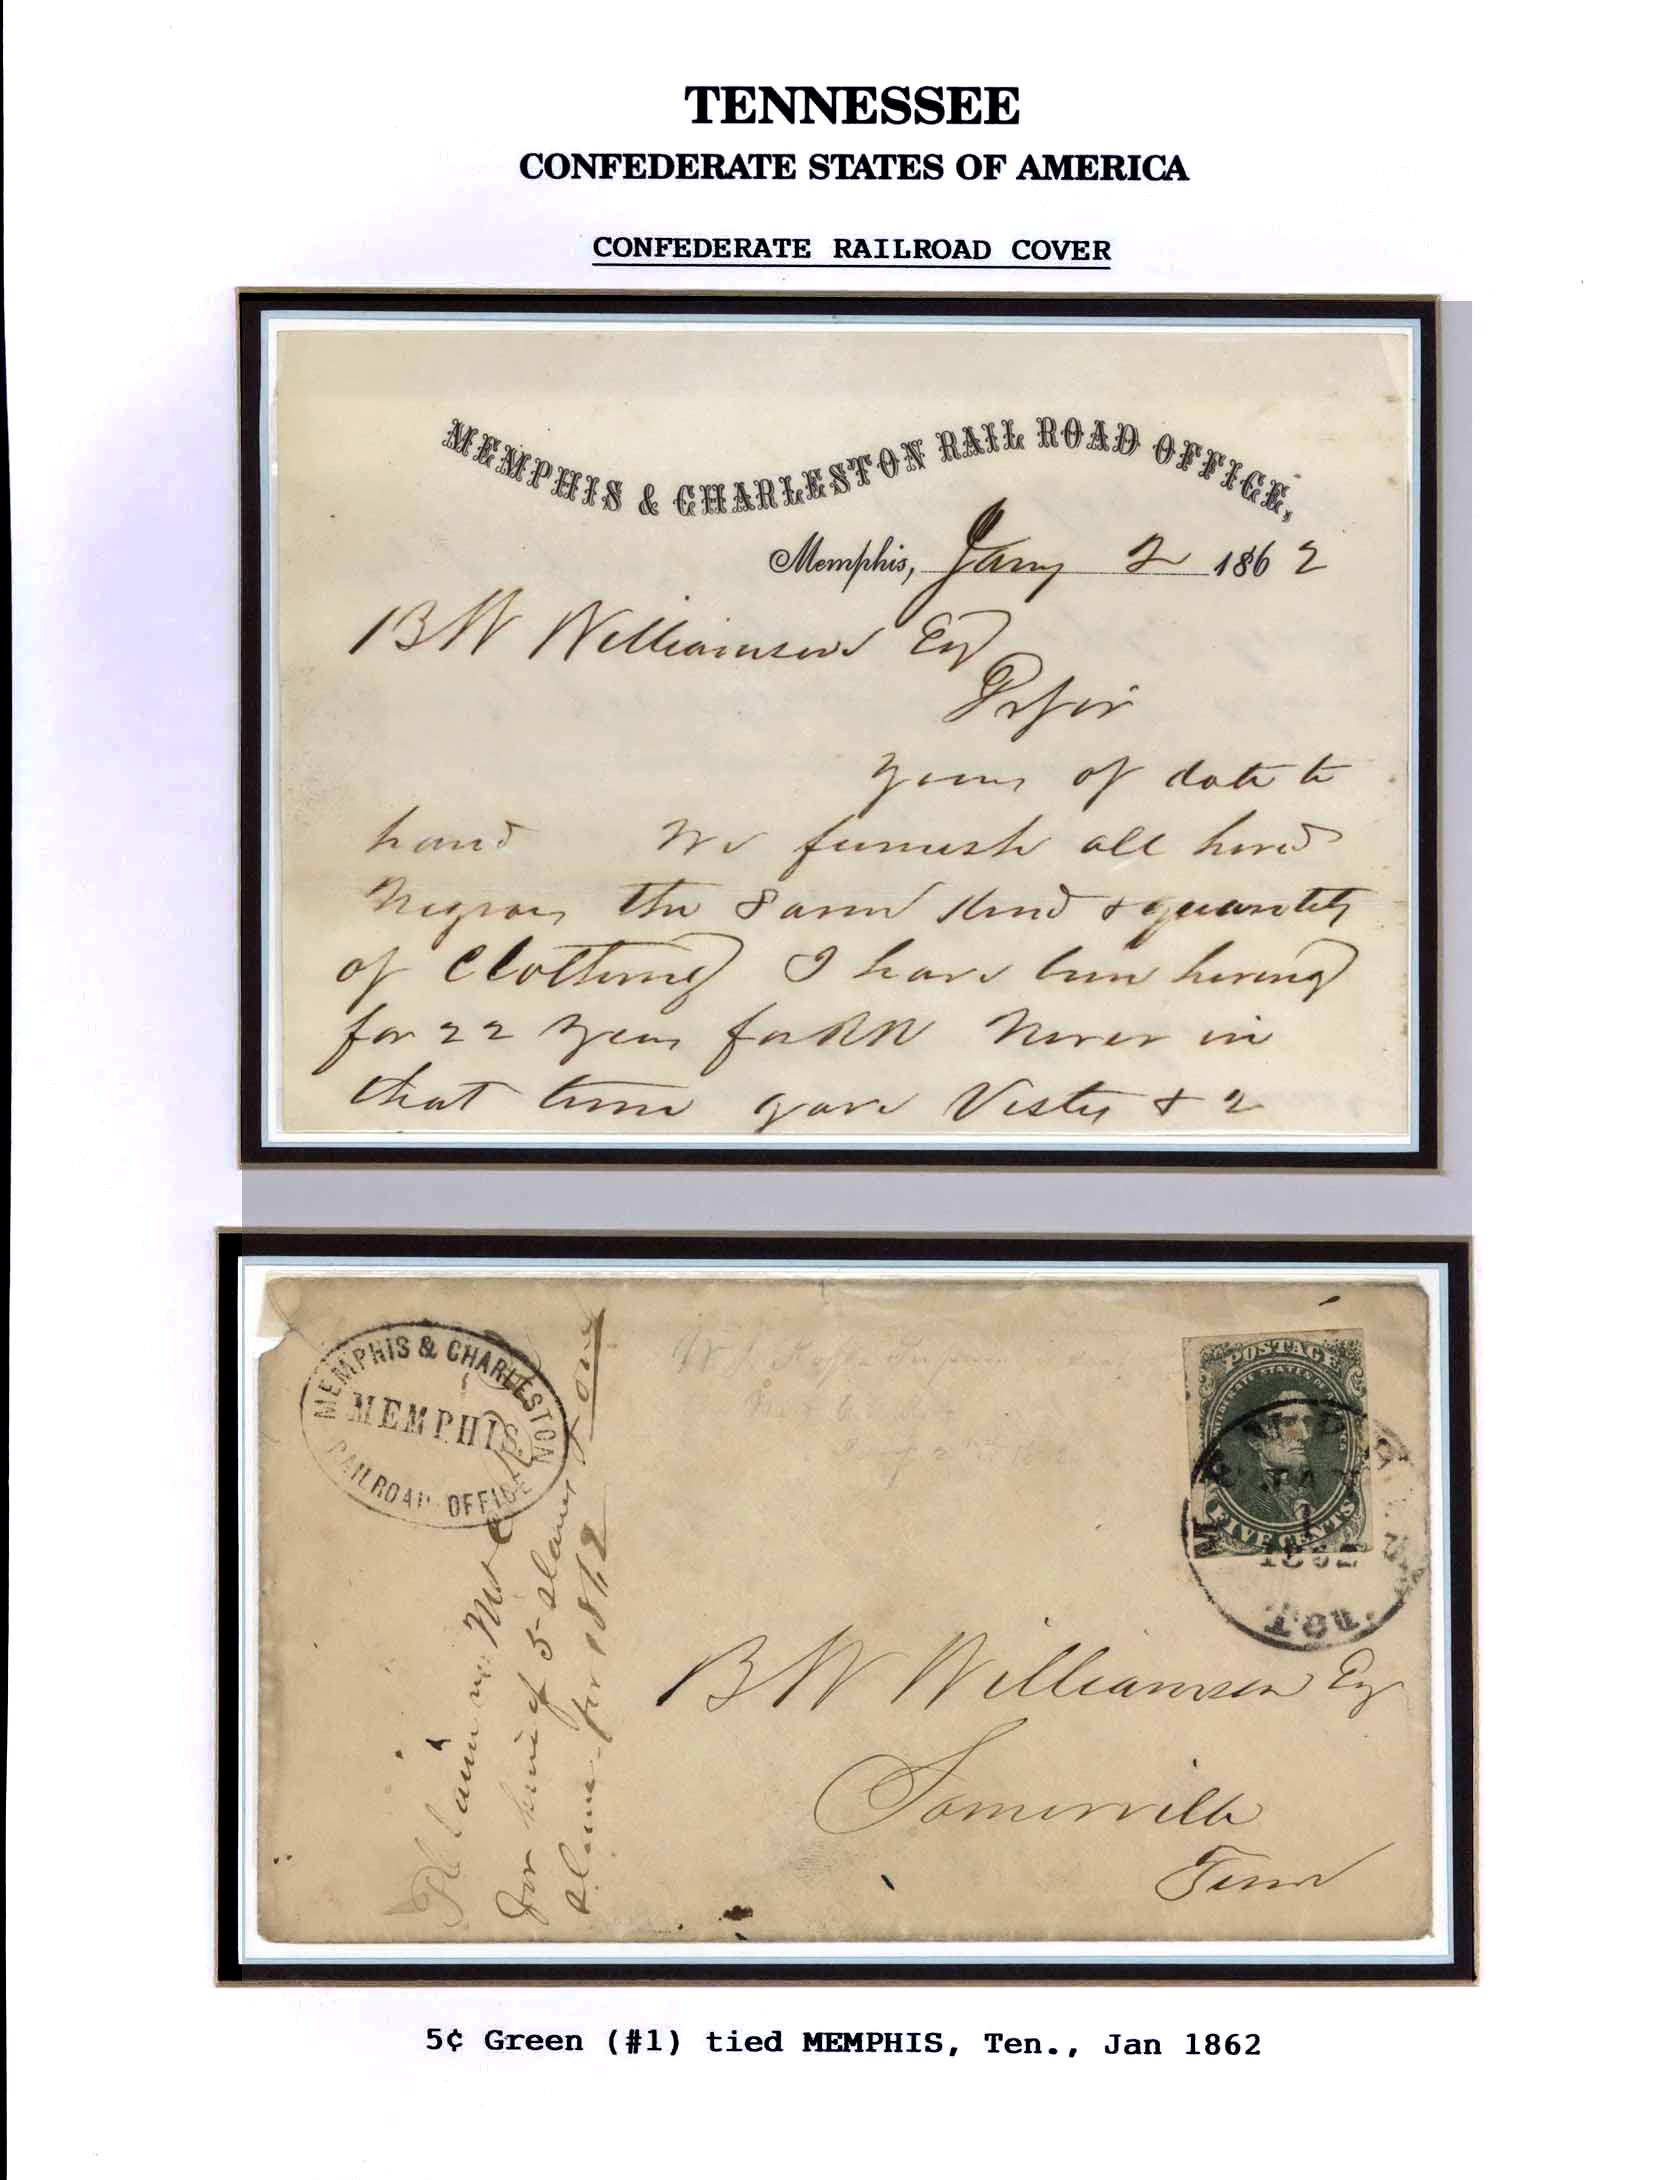 TENNESSEE
CONFEDERATE STATES OF AMERICA
CONFEDERATE RAILROAD COVER
MEMPHIS & CHARLESTON RAIL ROAD OFFICE,
Memphis, Jany 2 1862
B W Williamson Esq
Dr Sir
yours of date to
hand We furnish all hired
Negroes the same kind & quantity
of Clothing I have been hiring
for 22 years for RR Never in
that time gave Vests & 2
MEMPHIS & CHARLESTON
MEMPHIS
RAILROAD OFFICE
for hire of 5 slaves
for 1862
POSTAGE
CONFEDERATE STATES OF AMERICA
FIVE CENTS
MEMPHIS
JAN
1862
Ten.
B W Williamson Esq
Somerville
Tenn
5¢ Green (#1) tied MEMPHIS, Ten., Jan 1862